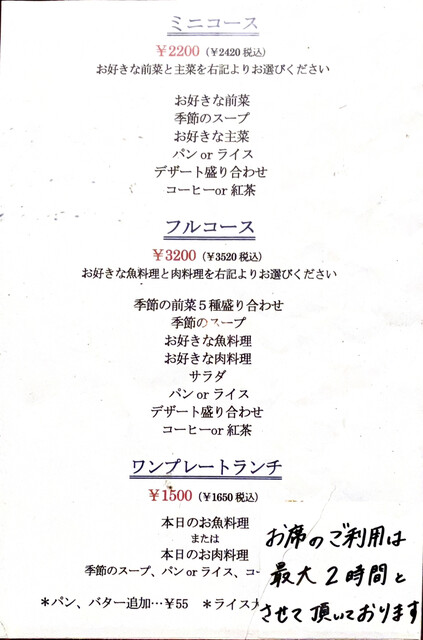 ミニコース
￥2200（￥2420税込）
お好きな前菜と主菜を右記よりお選びください
お好きな前菜
季節のスープ
お好きな主菜
パン or ライス
デザート盛り合わせ
コーヒーor 紅茶
フルコース
￥3200（￥3520税込）
お好きな魚料理と肉料理を右記よりお選びください
季節の前菜５種盛り合わせ
季節のスープ
お好きな魚料理
お好きな肉料理
サラダ
パン or ライス
デザート盛り合わせ
コーヒーor 紅茶
ワンプレートランチ
￥1500（￥1650税込）
本日のお魚料理
または
本日のお肉料理
季節のスープ、パン or ライス、コー
＊パン、バター追加…￥55　＊ライス
お席のご利用は
最大２時間と
させて頂いております